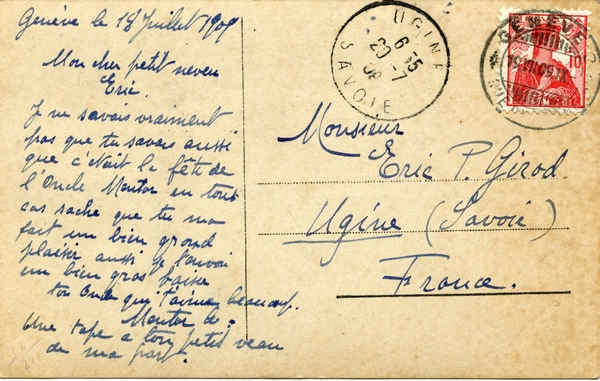 Genève le 18 Juillet 1909
Mon cher petit neveu
Eric.
Je ne savais vraiment
pas que tu savais aussi
que c'était la fête de
l'Oncle Mentor en tout
cas sache que tu m'a
fait un bien grand
plaisir aussi je t'envoi
un bien gros baise
ton Oncle qui t'aime beaucoup.
Mentor
Une tape a ton petit veau
de ma part.
UGINE
6-35
20-7
09
SAVOIE
GENÈVE
10
Monsieur
Eric P. Girod.
Ugine (Savoie)
France.